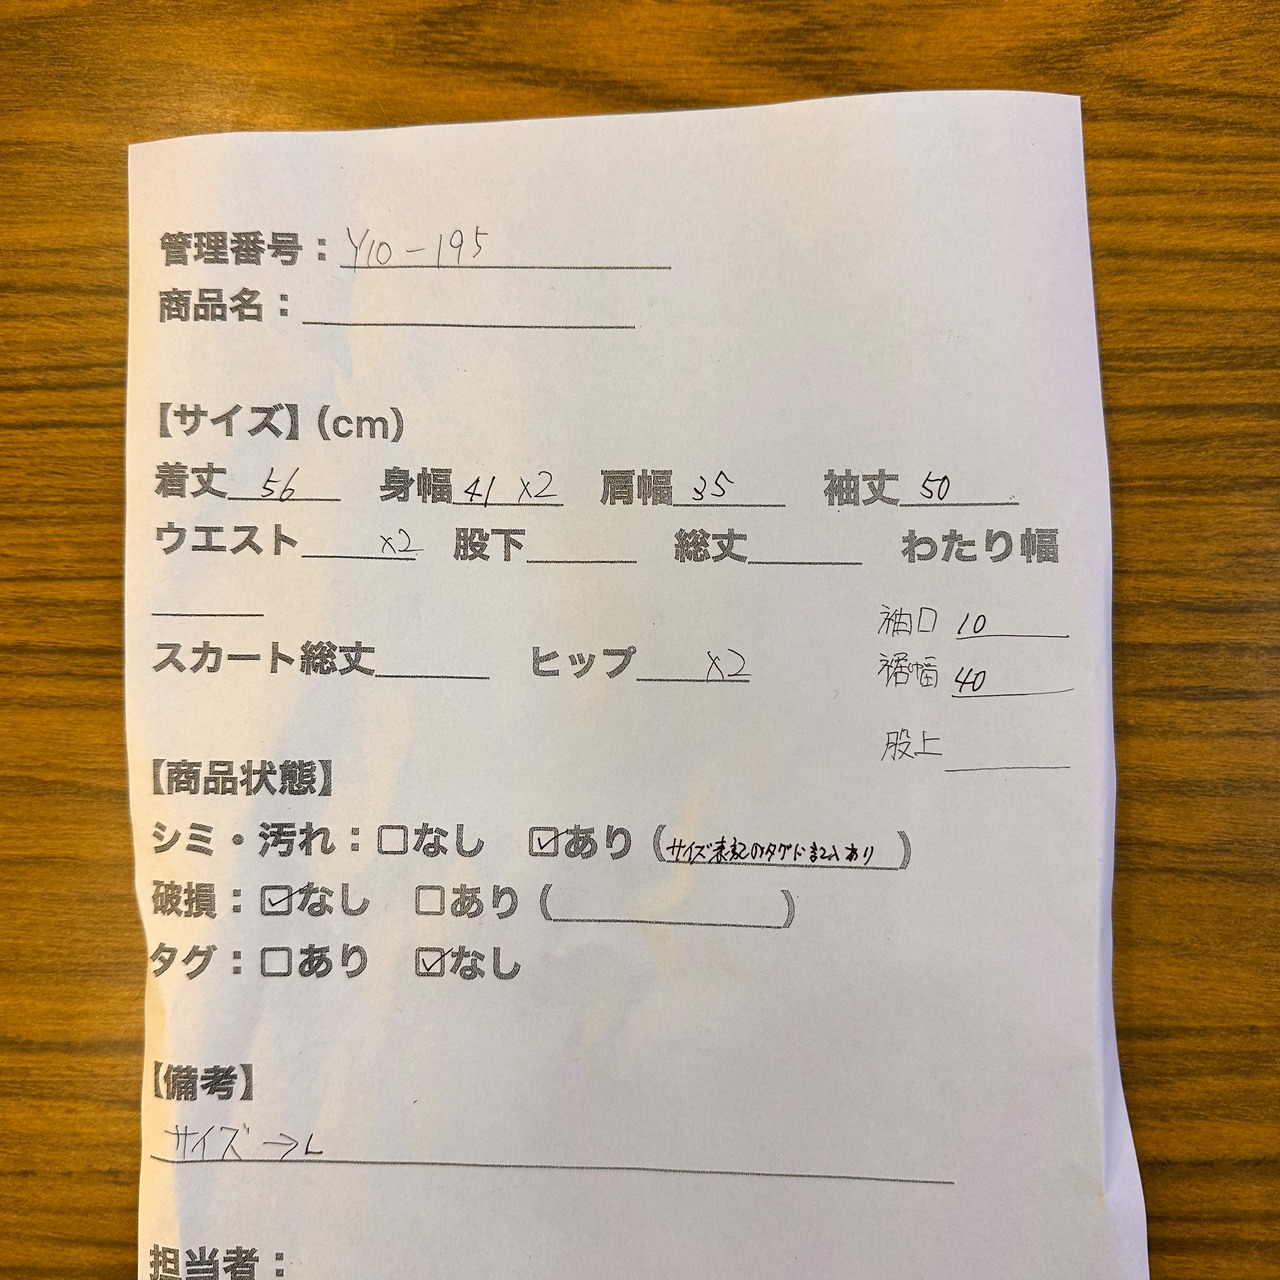 管理番号：Y10-195
商品名：
【サイズ】(cm)
着丈 56 身幅 41 ×2 肩幅 35 袖丈 50
ウエスト ×2 股下 総丈 わたり幅
袖口 10
スカート総丈 ヒップ ×2
裾幅 40
股上
【商品状態】
シミ・汚れ：□なし ☑あり (サイズ表記のタグに記入あり)
破損：☑なし □あり ( )
タグ：□あり ☑なし
【備考】
サイズ→L
担当者：